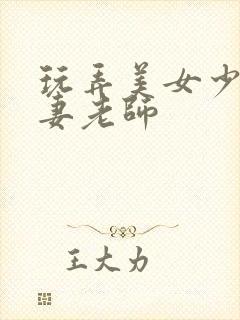 玩弄美女少
妻老师
王大力